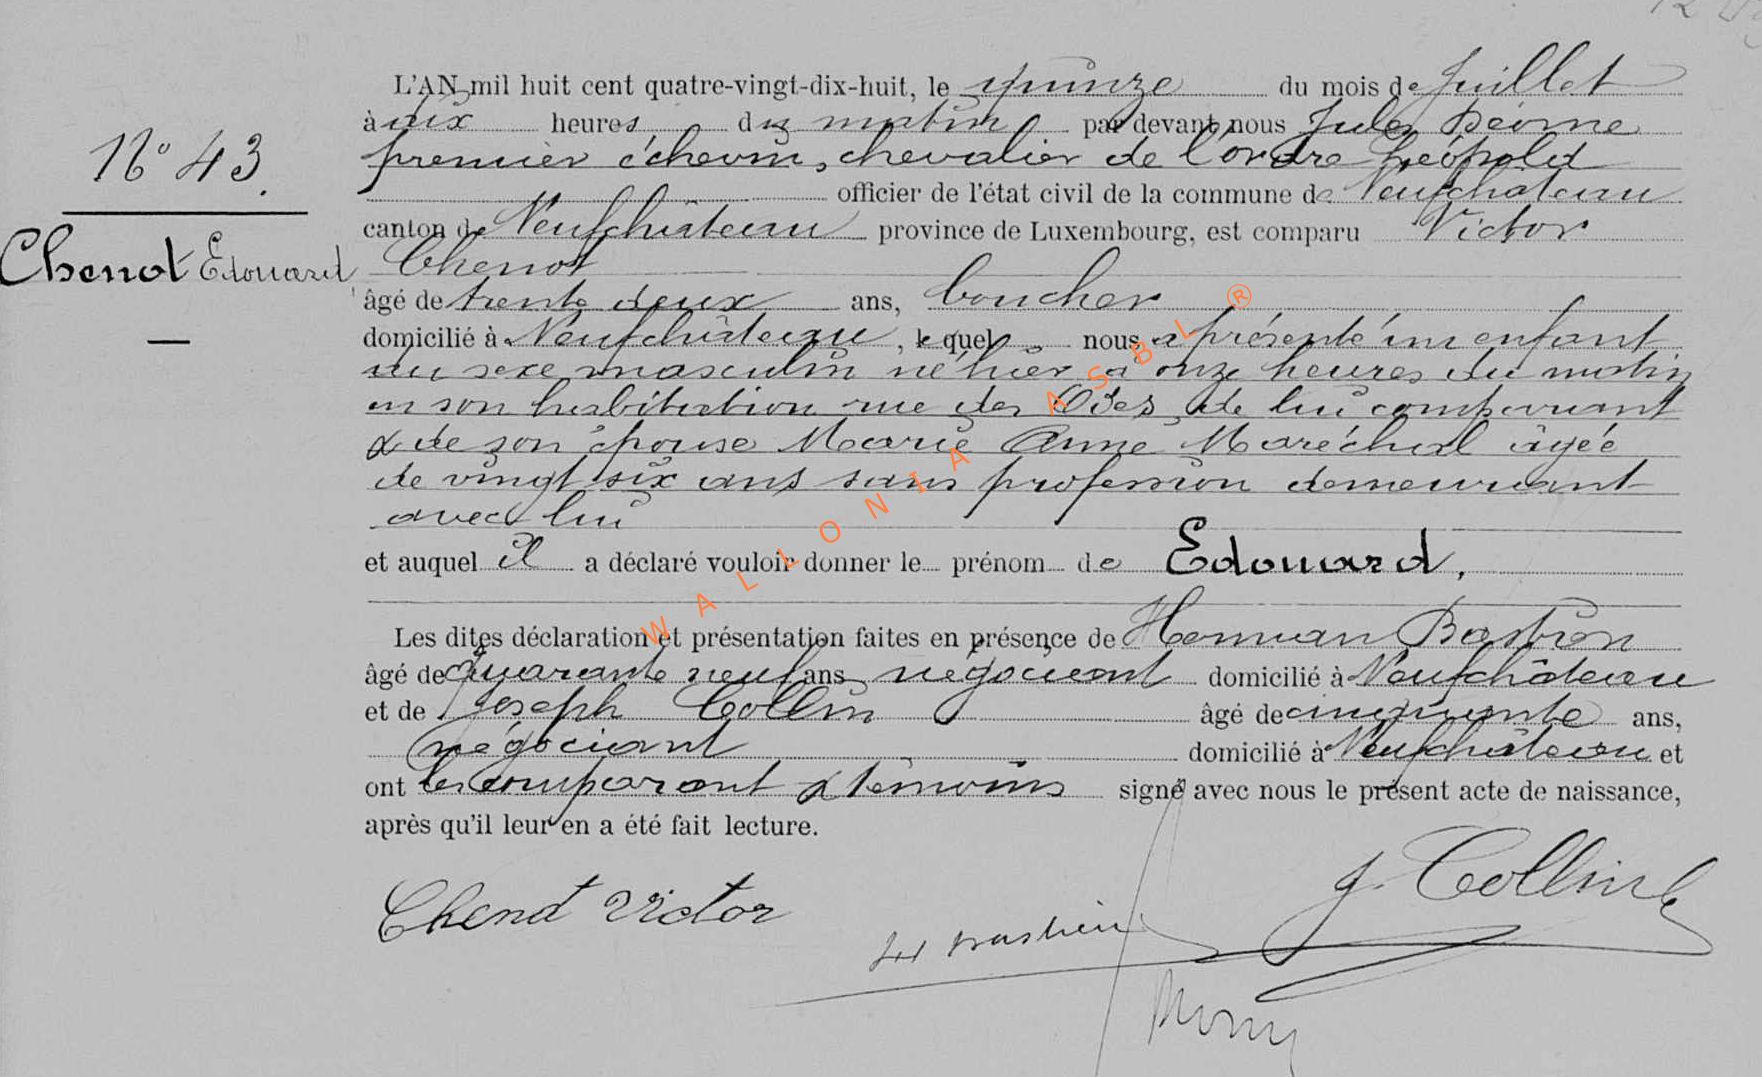 L'AN mil huit cent quatre-vingt-dix-huit, le quinze du mois de Juillet
à dix heures du matin par devant nous Jules
N° 43
premier échevin, chevalier de l'ordre Léopold
officier de l'état civil de la commune de Neufchâteau
canton de Neufchâteau province de Luxembourg, est comparu Victor
Chenot Edouard
Chenot
âgé de trente deux ans, boucher
domicilié à Neufchâteau, lequel nous a présenté un enfant
du sexe masculin né hier à onze heures du matin
en son habitation rue des de lui comparant
& de son épouse Marie Anne Maréchal âgée
de vingt six ans sans profession demeurant
avec lui
et auquel il a déclaré vouloir donner le prénom de Edouard.
Les dites déclaration et présentation faites en présence de Herman Bastien
âgé de quarante neuf ans négociant domicilié à Neufchâteau
et de Joseph Collin âgé de cinquante ans,
négociant domicilié à Neufchâteau et
ont les comparant & témoins signé avec nous le présent acte de naissance,
après qu'il leur en a été fait lecture.
J. Collin
Chenot Victor
H Bastien
WALLONIA ASBL ®